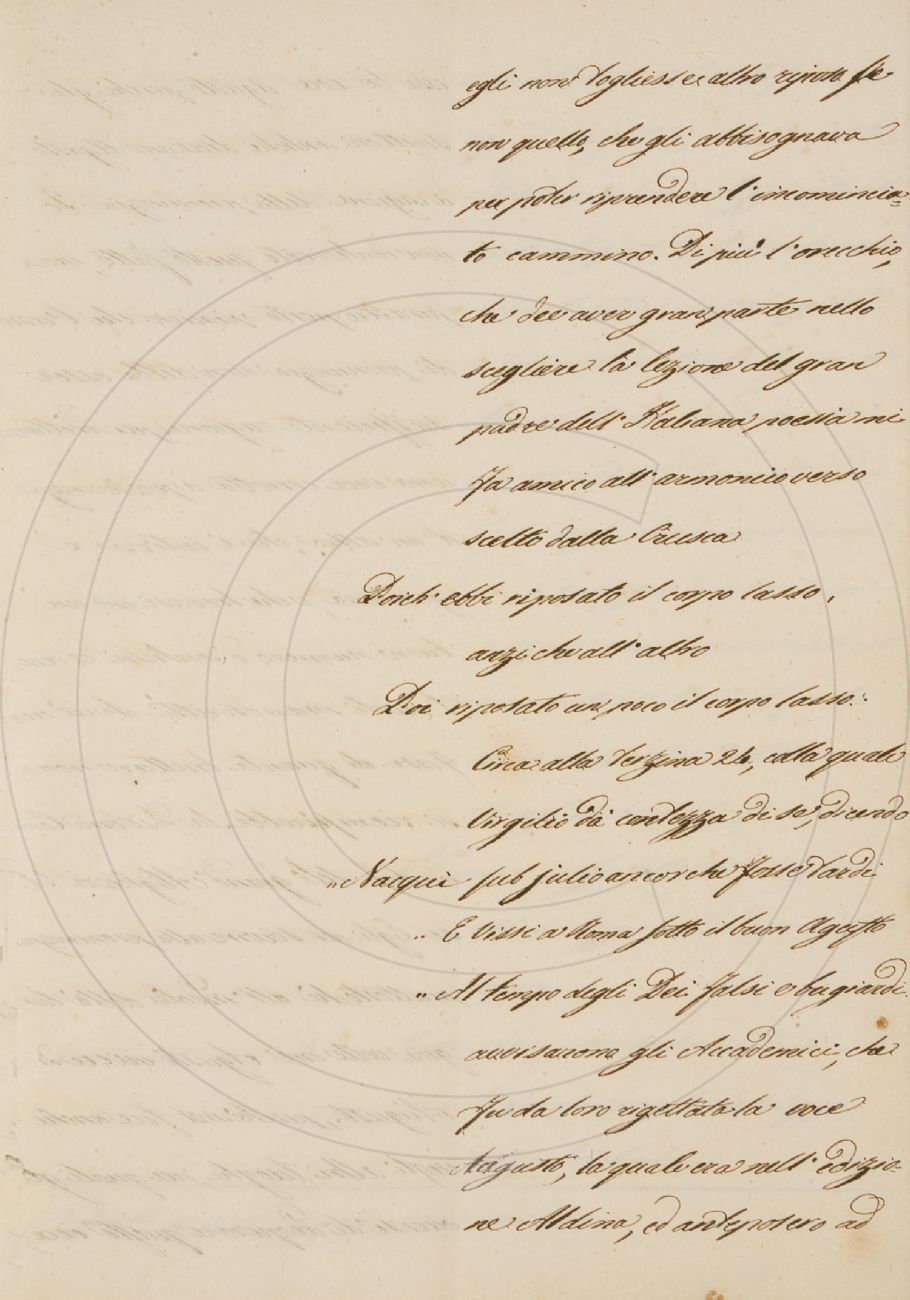 egli non togliesse altro riposo se
non quello, che gli abbisognava
per poter riprendere l'incomincia=
to cammino. Di più l'orecchio,
che dee aver gran parte nello
scegliere la lezione del gran
padre dell'Italiana poesia mi
fa amico all'armonico verso
scelto dalla Crusca
Poich'ebbi riposato il corpo lasso,
anzi che all'altro
Poi riposato un poco il corpo lasso:
Circa alla terzina 24, colla quale
Virgilio dà contezza di se, dicendo
„ Nacqui sub julio ancor che fosse tardi
„ E vissi a Roma sotto il buon Agusto
„ Al tempo degli Dei falsi e bugiardi.
avvisarono gli Accademici, che
fu da loro rigettata la voce
Augusto, la quale era nell'edizio=
ne Aldina, ed anteposero ad